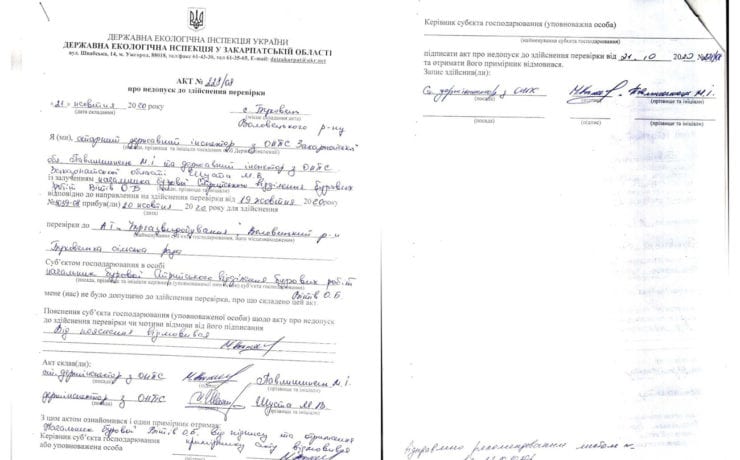 ДЕРЖАВНА ЕКОЛОГІЧНА ІНСПЕКЦІЯ УКРАЇНИ
ДЕРЖАВНА ЕКОЛОГІЧНА ІНСПЕКЦІЯ У ЗАКАРПАТСЬКІЙ ОБЛАСТІ
вул. Швабська, 14, м. Ужгород, 88018, тел/факс 61-63-20, тел 61-35-65, E-mail:
АКТ № 229/08
про недопуск до здійснення перевірки
«21» жовтня 2020 року
(дата складання)
с. Туровець
(місце складання акта)
Воловецького р-ну
Я (ми), старший державний інспектор з ОНПС Закарпатської
обл. Павлишинець М.І. та державний інспектор з ОНПС
Закарпатської області Шуста М.В.
із залученням начальника бурової Стрийського відділення бурових
робіт Вітів О.Б.
відповідно до направлення на здійснення перевірки від 19 жовтня 2020 року
прибув(ли) 20 жовтня 2020 року для здійснення
(дата)
перевірки до АТ "Укргазвидобування", Воловецький р-н
сільська рада
Суб'єктом господарювання в особі
начальник бурової Стрийського відділення бурових робіт
Вітів О.Б.
мене (нас) не було допущено до здійснення перевірки, про що складено цей акт.
Пояснення суб'єкта господарювання (уповноваженої особи) щодо акту про недопуск
до здійснення перевірки чи мотиви відмови від його підписання
Від пояснення відмовився
Акт склав(ли):
ст. держінспектор з ОНПС Павлишинець М.І.
(посада) (підпис) (прізвище та ініціали)
держінспектор з ОНПС Шуста М.В.
(посада) (підпис) (прізвище та ініціали)
З цим актом ознайомився і один примірник отримав:
Начальник бурової Вітів О.Б. від підпису та отримання
Керівник суб'єкта господарювання примірника акту відмовився
або уповноважена особа
Керівник субєкта господарювання (уповноважена особа)
(найменування суб'єкта господарювання)
підписати акт про недопуск до здійснення перевірки від 21.10 2020 № 229/08
та отримати його примірник відмовився.
Запис здійснив(ли):
Ст. держінспектор з ОНПС Павлишинець М.І.
(посада) (підпис) (прізвище та ініціали)
(посада) (підпис) (прізвище та ініціали)
Відправлено рекомендованим листом